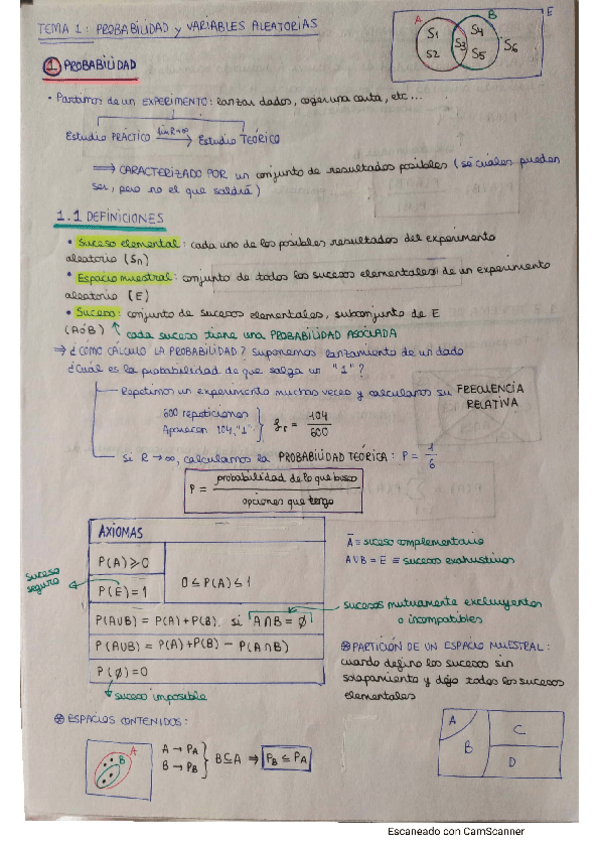 TEMA 1: PROBABILIDAD y VARIABLES ALEATORIAS
A B E
S1 S2 S3 S4 S5 S6
1 PROBABILIDAD
• Partimos de un EXPERIMENTO: lanzar dados, coger una carta, etc...
Estudio PRÁCTICO lim R→∞ Estudio TEÓRICO
⟹ CARACTERIZADO POR un conjunto de resultados posibles (sé cuales pueden
ser, pero no el que saldrá)
1.1 DEFINICIONES
• Suceso elemental: cada uno de los posibles resultados del experimento
aleatorio (Sn)
• Espacio muestral: conjunto de todos los sucesos elementales de un experimento
aleatorio (E)
• Suceso: conjunto de sucesos elementales, subconjunto de E
(A ó B) ↑ cada suceso tiene una PROBABILIDAD ASOCIADA
⇒ ¿CÓMO CÁLCULO LA PROBABILIDAD? Suponemos lanzamiento de un dado
¿Cuál es la probabilidad de que salga un "1"?
Repetimos un experimento muchas veces y calculamos su FRECUENCIA
RELATIVA
600 repeticiones
Aparecen 104 "1"
fr = 104/600
Si R → ∞, calculamos la PROBABILIDAD TEÓRICA: P = 1/6
P = probabilidad de lo que busco / opciones que tengo
AXIOMAS
P(A) ≥ 0
suceso seguro
P(E) = 1
0 ≤ P(A) ≤ 1
Ā = suceso complementario
A∪B = E ≡ sucesos exhaustivos
P(A∪B) = P(A) + P(B). si A∩B = ∅
sucesos mutuamente excluyentes
o incompatibles
P(A∪B) = P(A) + P(B) − P(A∩B)
P(∅) = 0
suceso imposible
⊛ PARTICIÓN DE UN ESPACIO MUESTRAL:
cuando defino los sucesos sin
solapamiento y dejo todos los sucesos
elementales
⊛ ESPACIOS CONTENIDOS:
A B
A → PA
B → PB
B ⊆ A ⇒ PB ≤ PA
A B C D
Escaneado con CamScanner